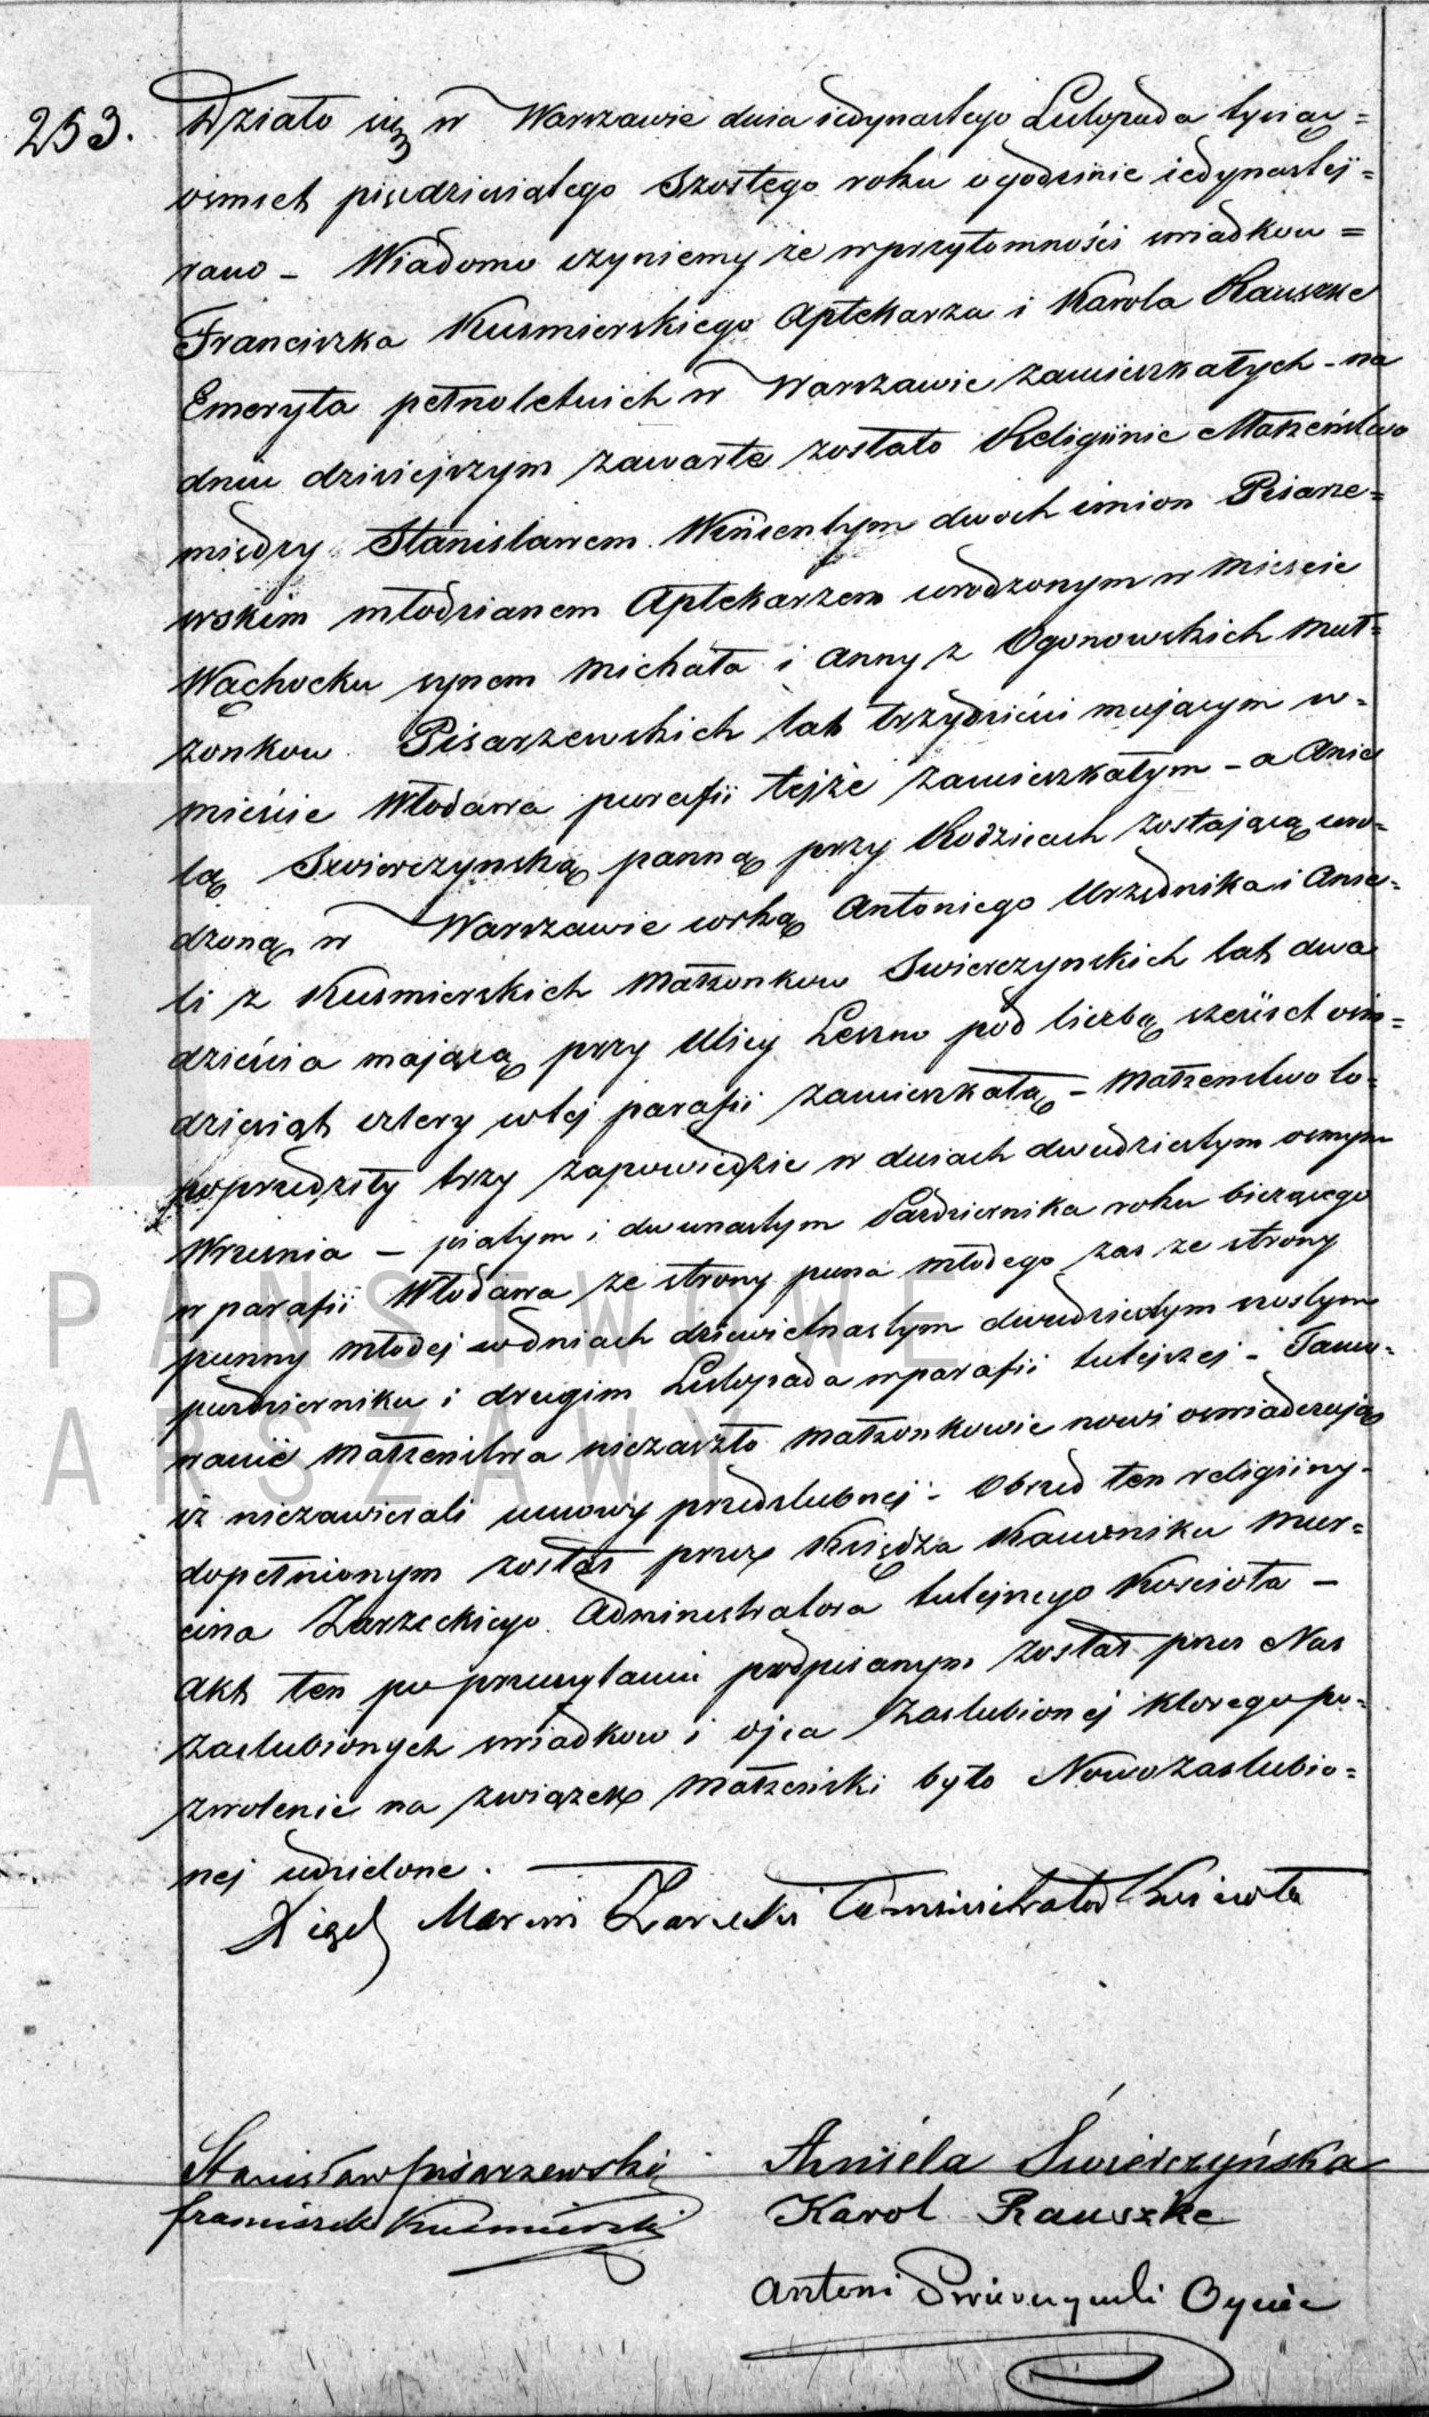 253.
Działo się w Warszawie dnia iedynastego Listopada tysiąc=
ośmset pięćdziesiątego Szostego roku o godzinie iedynastej=
rano – Wiadomo czyniemy że w przytomności swiadkow=
Franciszka Kusmierskiego Aptekarza i Karola Rauszke
Emeryta pełnoletnich w Warszawie zamieszkałych – na
dniu dzisiejszym zawarte zostało Religijnie Małżeństwo
między Stanisławem Wincentym dwoch imion Pisarze=
wskim młodzianem Aptekarzem urodzonym w miescie
Wąchocku synem Michała i Anny z Ogonowskich Mał=
żonkow Pisarzewskich lat trzydzieści mającym w=
mieście Włodawa parafii tejże zamieszkałym – a Anie
lą Swierczynską panną przy Rodzicach zostającą uro=
dzoną w Warszawie corką Antoniego Urzędnika i Anie=
li z Kusmierskich Małżonkow Swierczynskich lat dwa
dzieścia mającą przy Ulicy Leszno pod liczbą sześćset ośm=
dziesiąt cztery w tej parafii zamieszkałą – Małżeństwo to=
poprzedziły trzy zapowiedzie w dniach dwudziestym osmym
Wrzesnia – piątym i dwunastym Pazdziernika roku bieżącego
w parafii Włodawa ze strony pana młodego zas ze strony
panny młodej w dniach dziewietnastym dwudziestym szostym
pazdziernika i drugim Listopada w parafii tutejszej – Tamo=
wanie małżenstwa niezaszło małżonkowie nowi oswiadczają
iż niezawierali umowy przedslubnej – Obrzęd ten religijny
dopełnionym został przez Księdza Kanonika Mar=
cina Zarzeckiego Administratora tutejszego Kosciola –
Akt ten po przeczytaniu podpisanym został przez Nas
zaslubionych swiadkow i ojca Zaslubionej ktorego po=
zwolenie na związek małżeński było Nowozaslubio=
nej udzielone.
Xiądz Marcin Zarzecki Administrator Kosciola
Stanisław Pisarzewski Aniela Świerczyńska
Franciszek Kuśmierski Karol Rauszke
Antoni Swierczynski Oyciec
PAŃSTWOWE
ARSZAWY